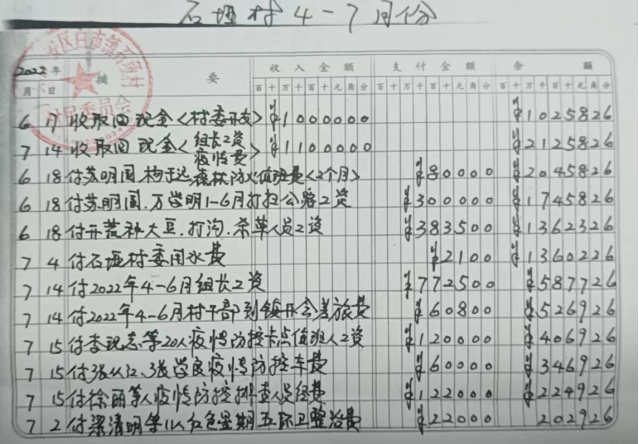 石垭村4-7月份
2022年 摘 要 收入金额 支付金额 余 额
月 日 百十万千百十元角分 百十万千百十元角分 百十万千百十元角分
6 17 收取回现金(村委开支) ¥1000000 ¥1025826
7 14 收取回现金(组长工资 疫情费) ¥1100000 ¥2125826
6 18 付苏明国、 森林防火值班费(2个月) ¥80000 ¥2045826
6 18 付苏明国、万学明1-6月打扫公路工资 ¥300000 ¥1745826
6 18 付开荒种大豆、打沟、杀草人员工资 ¥383500 ¥1362326
7 4 付石垭村委用水费 ¥2100 ¥1360226
7 14 付2022年4-6月组长工资 ¥772500 ¥587726
7 14 付2022年4-6月村干部到镇开会差旅费 ¥60800 ¥526926
7 15 付李现志等20人疫情防控卡点值班人工资 ¥120000 ¥406926
7 15 付张从江、张学良疫情防控车费 ¥60000 ¥346926
7 15 付徐丽等人疫情防控排查人员经费 ¥122000 ¥224926
7 2 付梁清明等11人红色星期五环卫整治费 ¥22000 202926